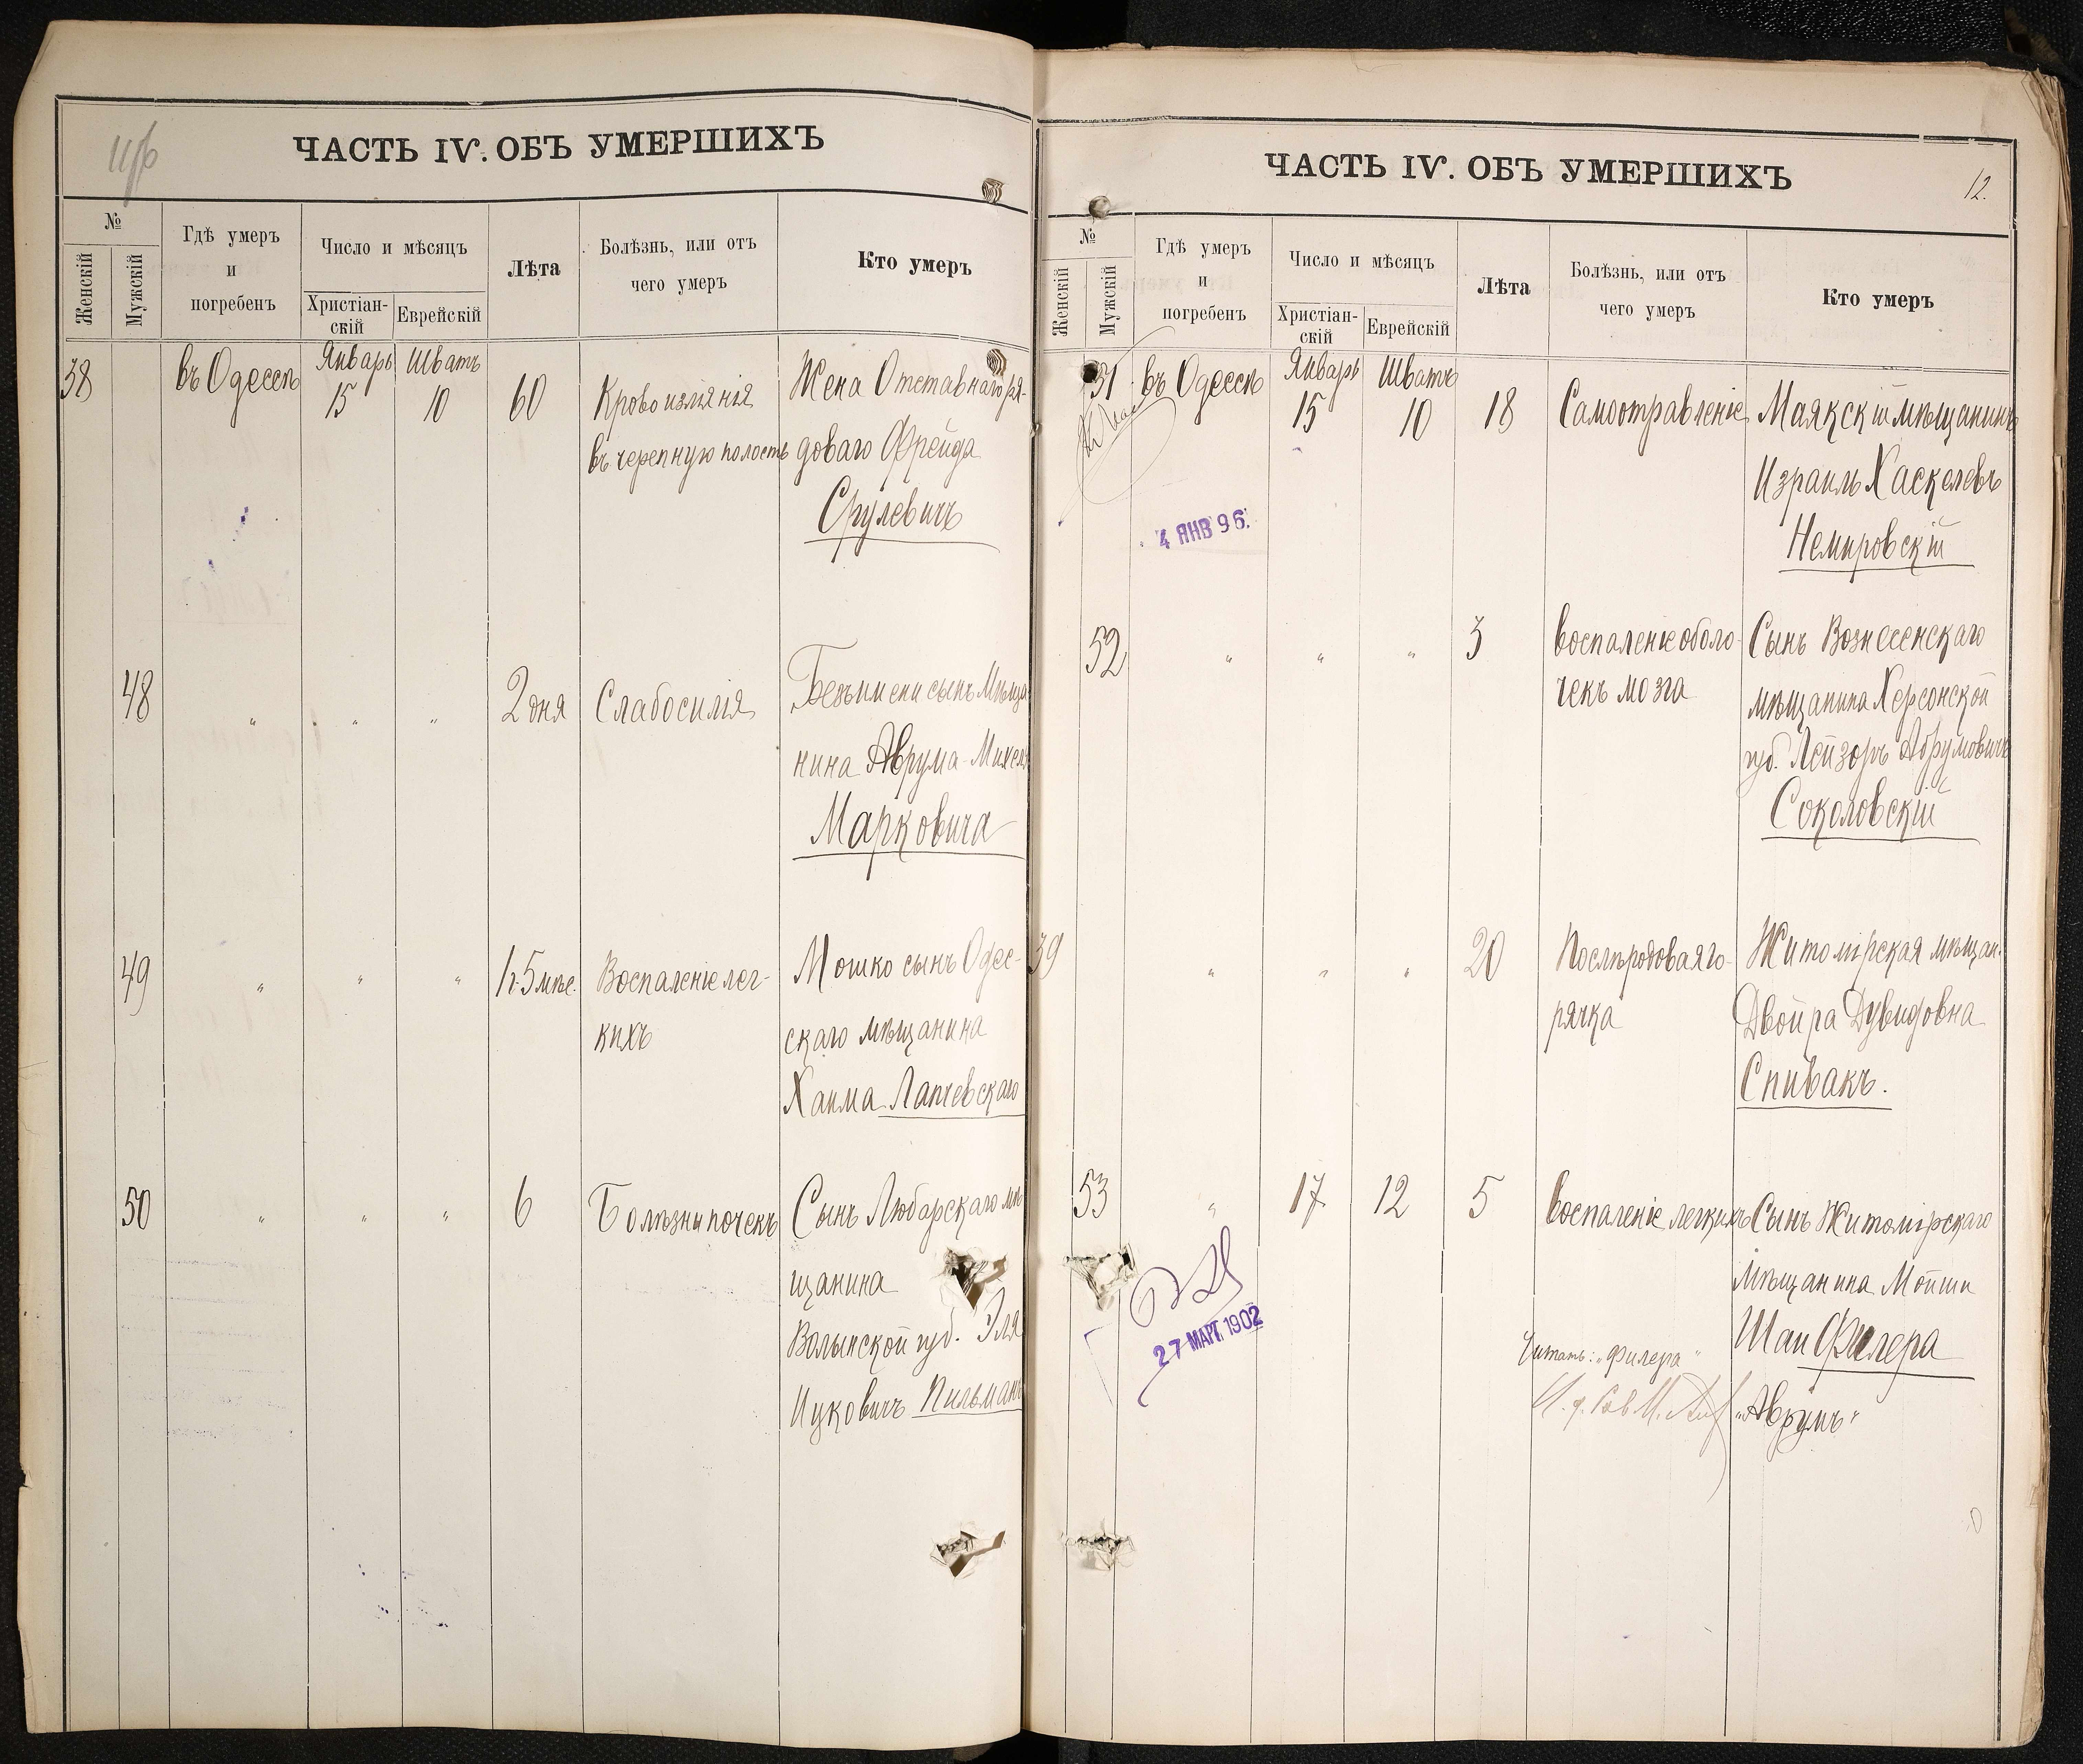 ЧАСТЬ IV. ОБЪ УМЕРШИХЪ
№
Женскій
Мужскій
Гдѣ умеръ
и
погребенъ
Число и мѣсяцъ
Христіан-
скій
Еврейскій
Лѣта
Болѣзнь, или отъ
чего умеръ
Кто умеръ
38
въ Одессѣ
Январь
15
Шватъ
10
60
Кровоизліянія
въ черепную полость
Жена Отставнаго ря-
доваго Фрейда
Срулевичъ
48
"
"
"
2 дня
Слабосилія
Безъимени сынъ Мѣща
нина Аврума-Михеля
Марковича
49
"
"
"
1 г. 5 мѣс.
Воспаленіе лег-
кихъ
Мошко сынъ Одес-
скаго мѣщанина
Хаима Лапчевскаго
50
"
"
"
6
Болѣзни почекъ
Сынъ Любарскаго мѣ
щанина
Волынской губ. Эля
Ицковичъ Пильманъ
ЧАСТЬ IV. ОБЪ УМЕРШИХЪ
12.
№
Женскій
Мужскій
Гдѣ умеръ
и
погребенъ
Число и мѣсяцъ
Христіан-
скій
Еврейскій
Лѣта
Болѣзнь, или отъ
чего умеръ
Кто умеръ
51
въ Одессѣ
Январь
15
Шватъ
10
18
Самоотравленіе
Маякскій мѣщанинъ
Израиль Хаскелевъ
Немировскій
4 ЯНВ 96.
52
"
"
"
3
Воспаленіе оболо-
чекъ мозга
Сынъ Вознесенскаго
мѣщанина Херсонской
губ. Лейзоръ Абрумовичъ
Соколовскій
39
"
"
"
20
Послѣродовая го-
рячка
Житомірская мѣщан.
Двойра Дувидовна
Спивакъ.
53
"
17
12
5
Воспаленіе легкихъ
Сынъ Житомірскаго
Мѣщанина Мойши
Шаи Филера
"Аврумъ"
27 МАРТ 1902
Читать: "Филера"